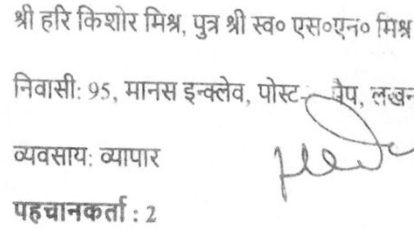 श्री हरि किशोर मिश्र, पुत्र श्री स्व० एस०एन० मिश्र
निवासी: 95, मानस इन्क्लेव, पोस्ट-
व्यवसाय: व्यापार
पहचानकर्ता : 2